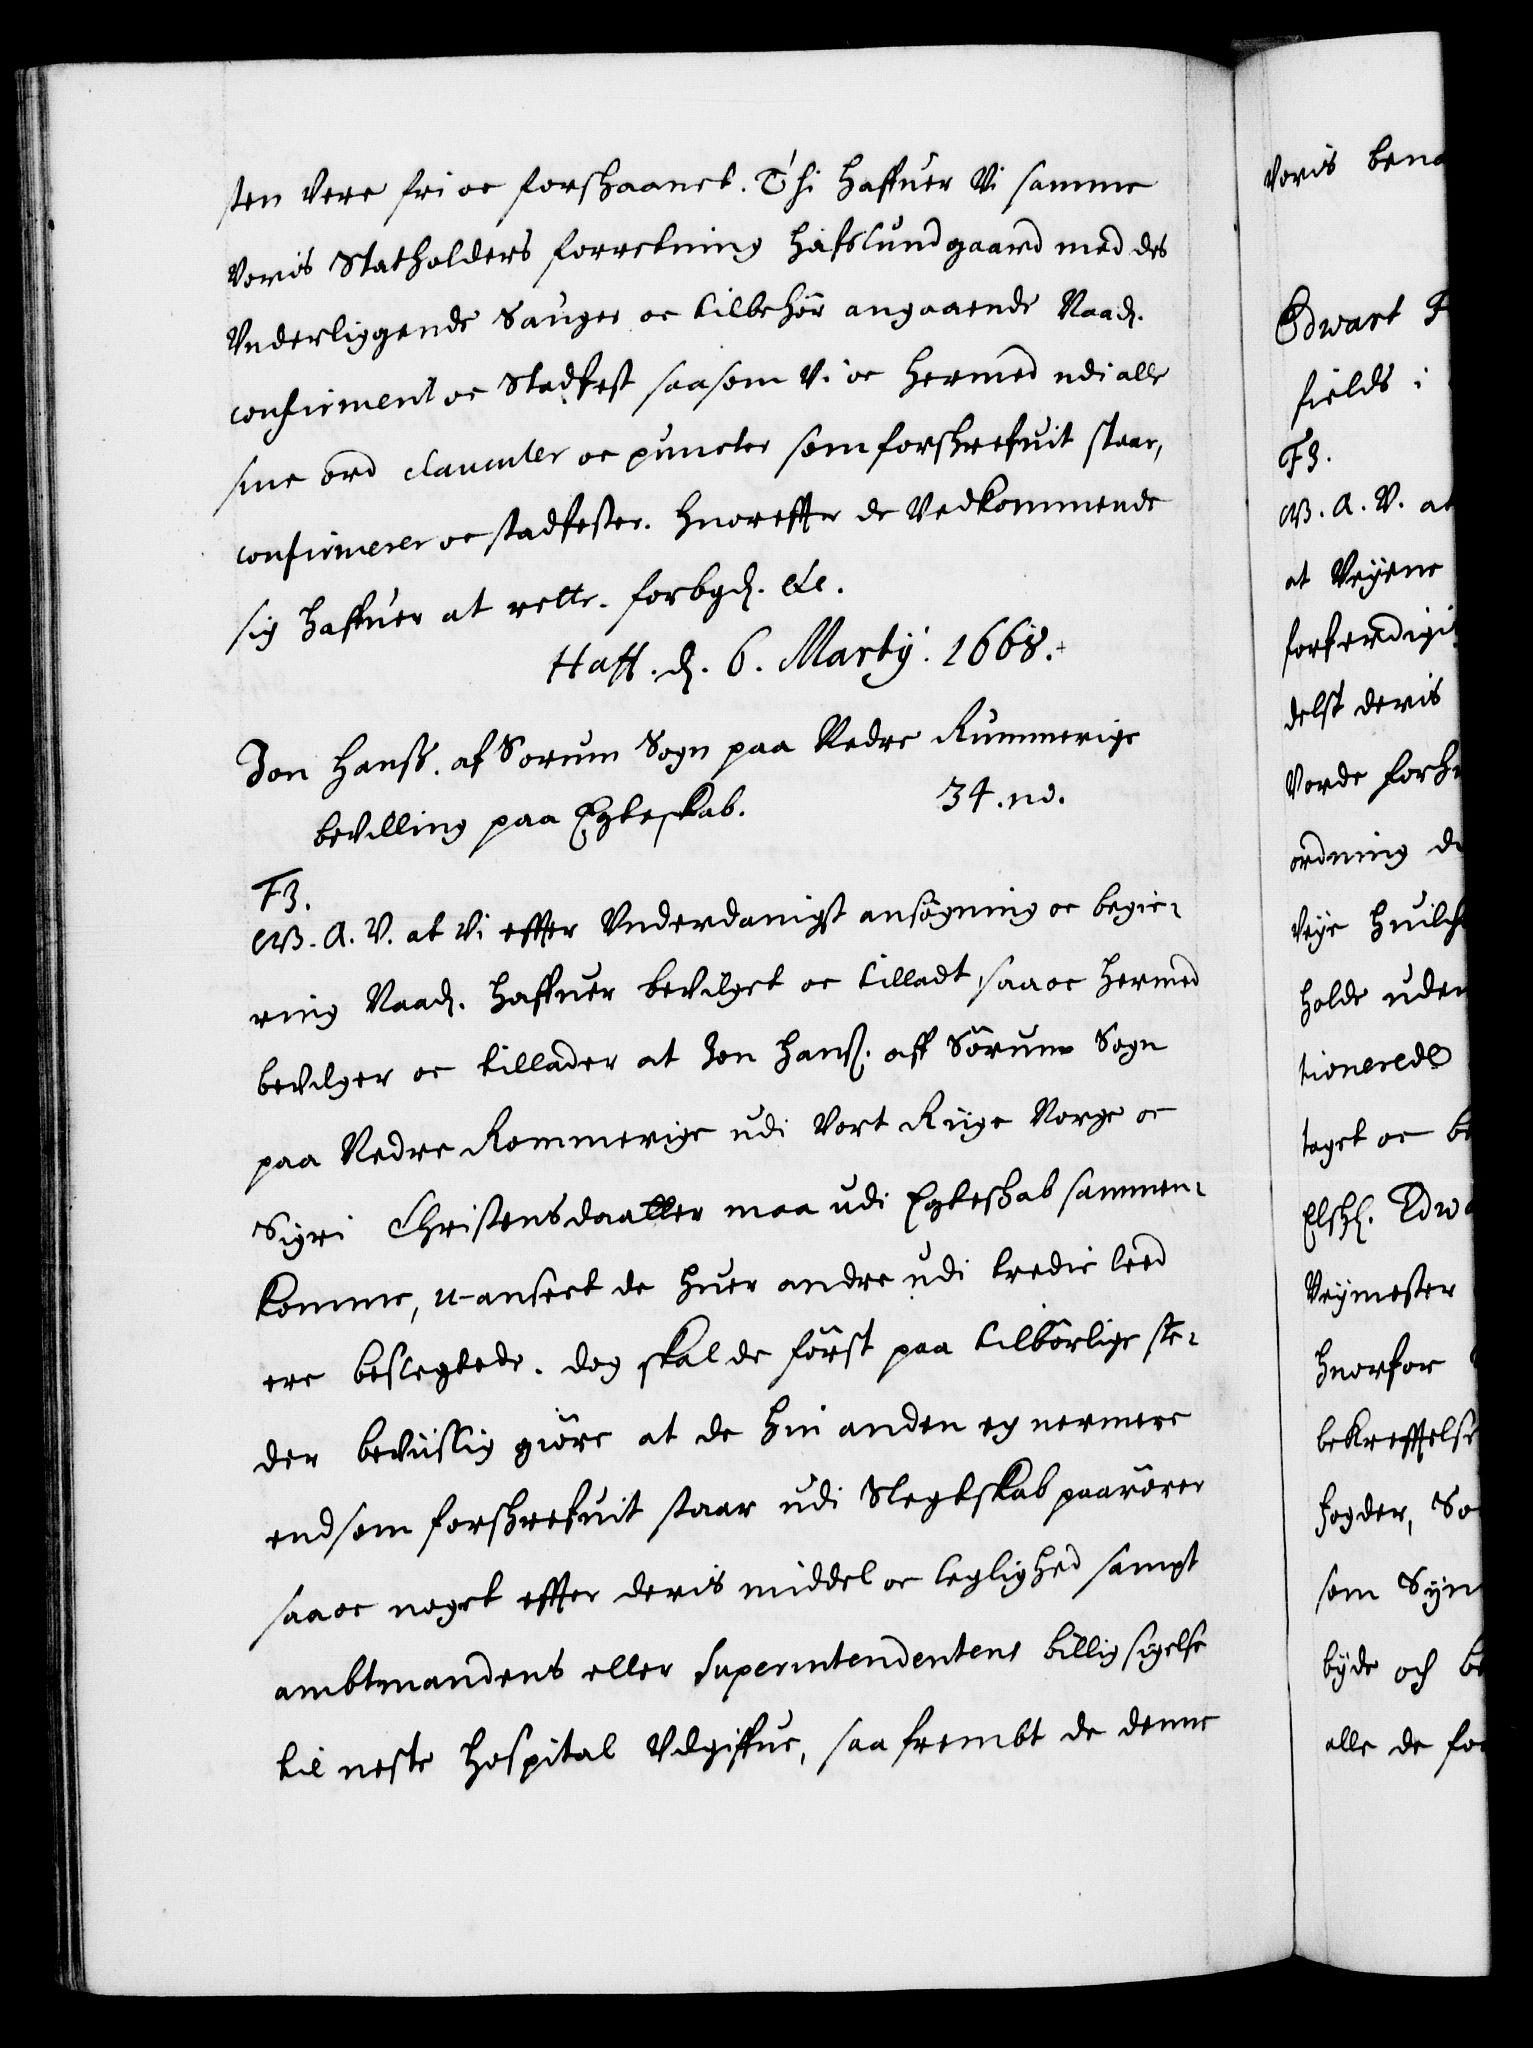 sten være fri oc forskaanet. Thi haffuer Vi samme
Voris Statholders forretning Hafslundgaard med des
Vnderliggende Sauger oc tilbehör angaaende Naad.
confirmerit oc Stadfest saasom Vi oc hermed udi alle
sine ord clausuler oc puncter som forskrefuit staar,
confirmerer oc stadfester. Huoreffter de Vedkommende
sig haffuer at rette. forbÿd. etc.
Haff. d. 6. Martÿ. 1668.
Jon Hanss. af Sorum Sogn paa Nedre Rummerige
bevilling paa Egteskab. 34. no.
F3.
G.A.V. at Vi effter Vnderdanigst ansögning oc begie-
ring Naad. haffuer bevilget oc tilladt, saa oc hermed
bevilger oc tillader at Jon Hanss. aff Sörum Sogn
paa Nedre Rommerige udi Vort Riige Norge oc
Sigri Christensdaatter maa udi Egteskab sammen-
komme, u-anseet de huer andre udi tredie leed
ere beslegtede. dog skal de först paa tilbörlige ste-
der beviislig giöre at de hin anden ey nermere
end som forskrefuit staar udi Slegtskab paarörer
saa oc noget effter deris middel oc leglighed sampt
ambtmandens eller Superintendentens billigsigelse
til neste Hospital Vdgiffue, saa frembt de denne
Voris bena
Edwart F
fields i
F3.
G. A. V. at
at Veÿene
forferdigi
delst deris
Vorde forh
ordning de
Veÿe huilch
holde uden
tionerede
taget oc be
Elskl. Edwa
Veÿmester
Huorfor
bekreffelse
fogder, So
som Sÿn
bÿde och be
alle de for